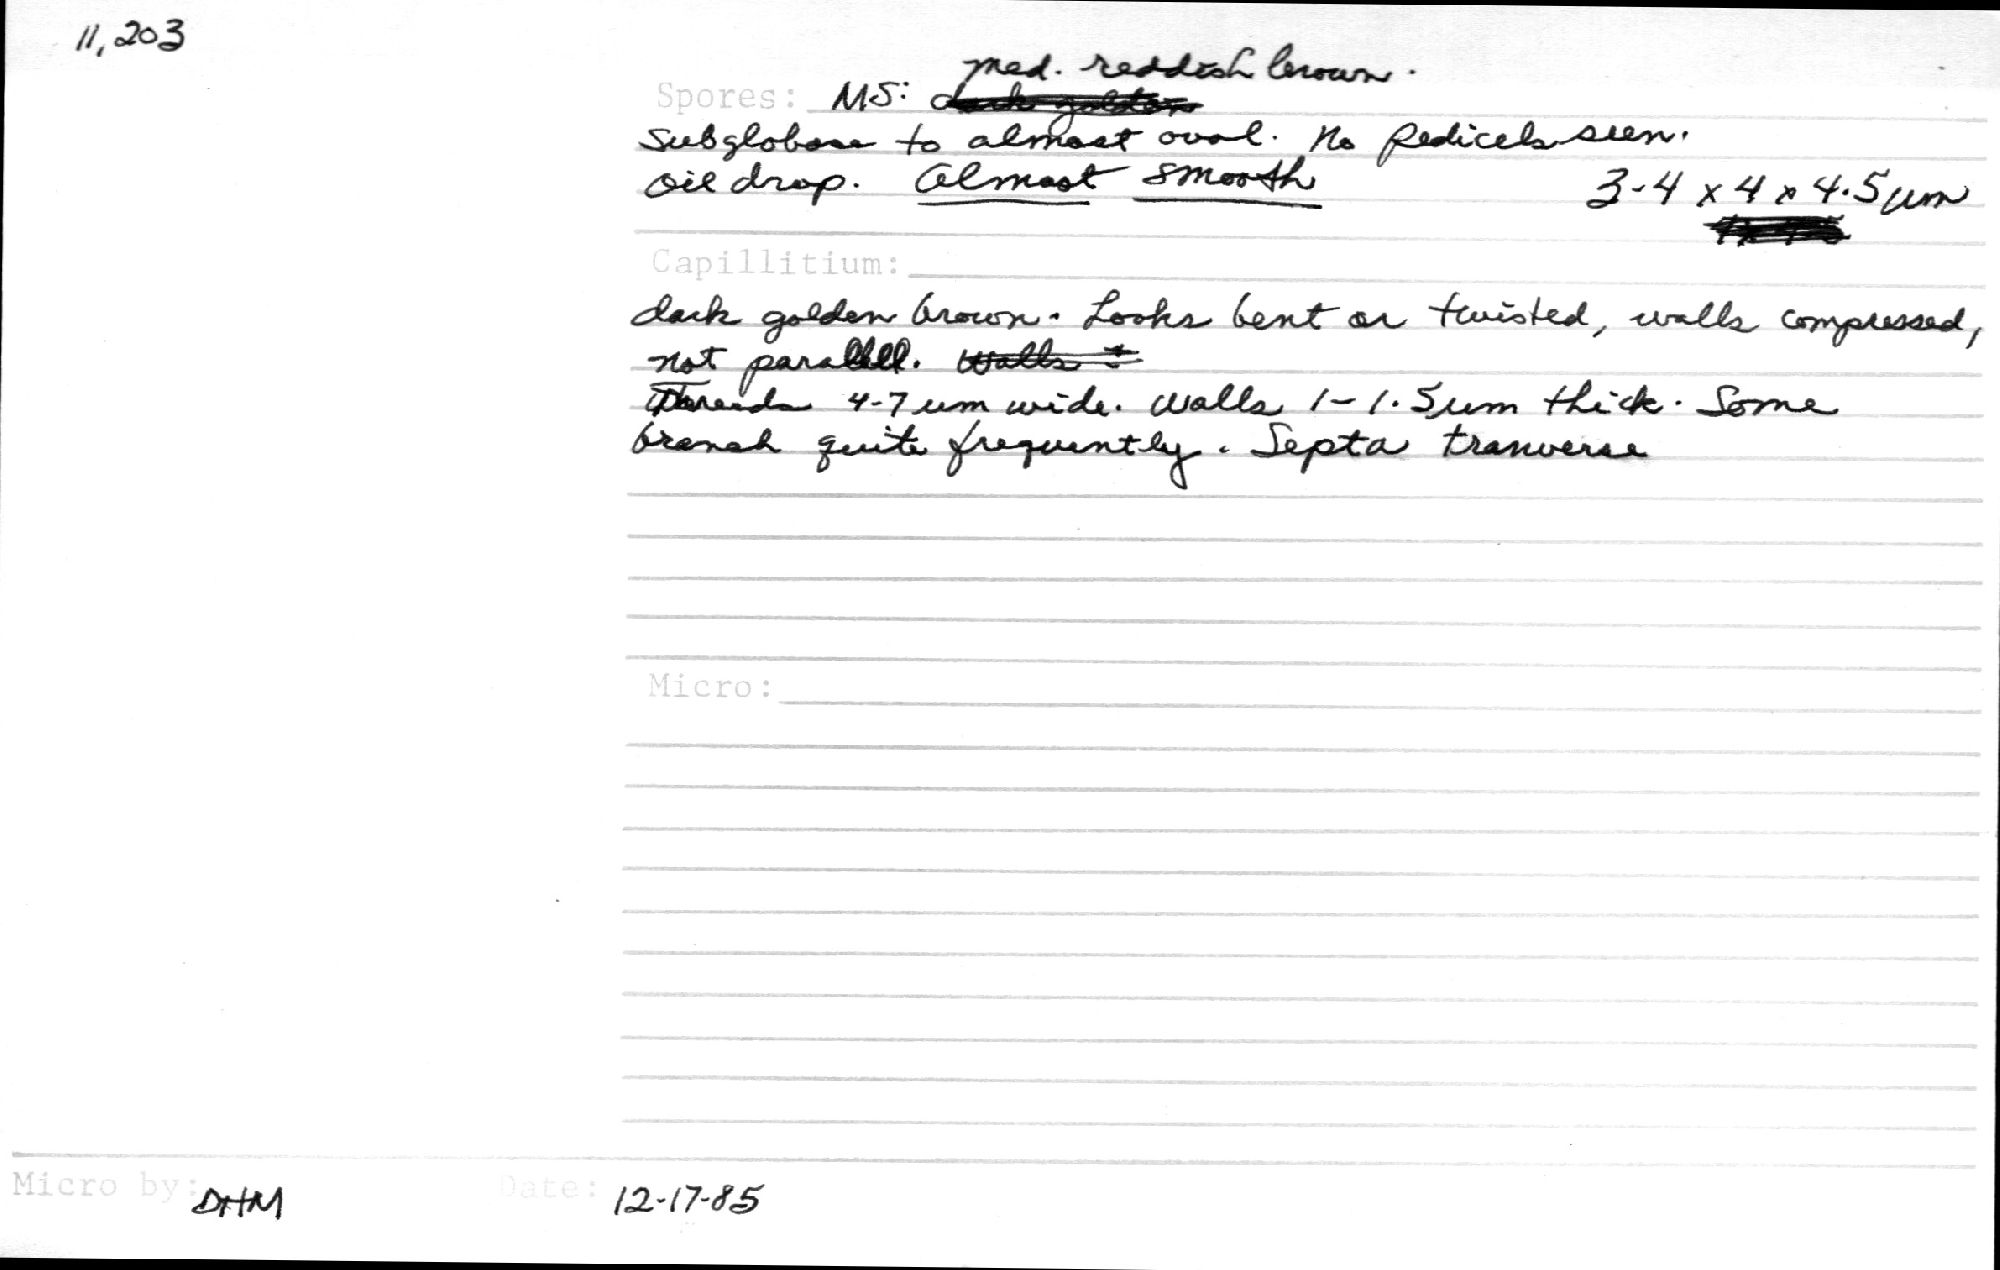 11,203
med. reddish brown.
Spores: MS: dark golden
subglobose to almost oval. No pedicels seen.
oil drop. Almost smooth 3-4 x 4 x 4.5 µm
Capillitium:
dark golden brown. Looks bent or twisted, walls compressed,
not parallell. Walls
Threads 4-7 um wide. Walls 1-1.5 um thick. Some
branch quite frequently. Septa tranverse
Micro:
Micro by: DHM Date: 12-17-85